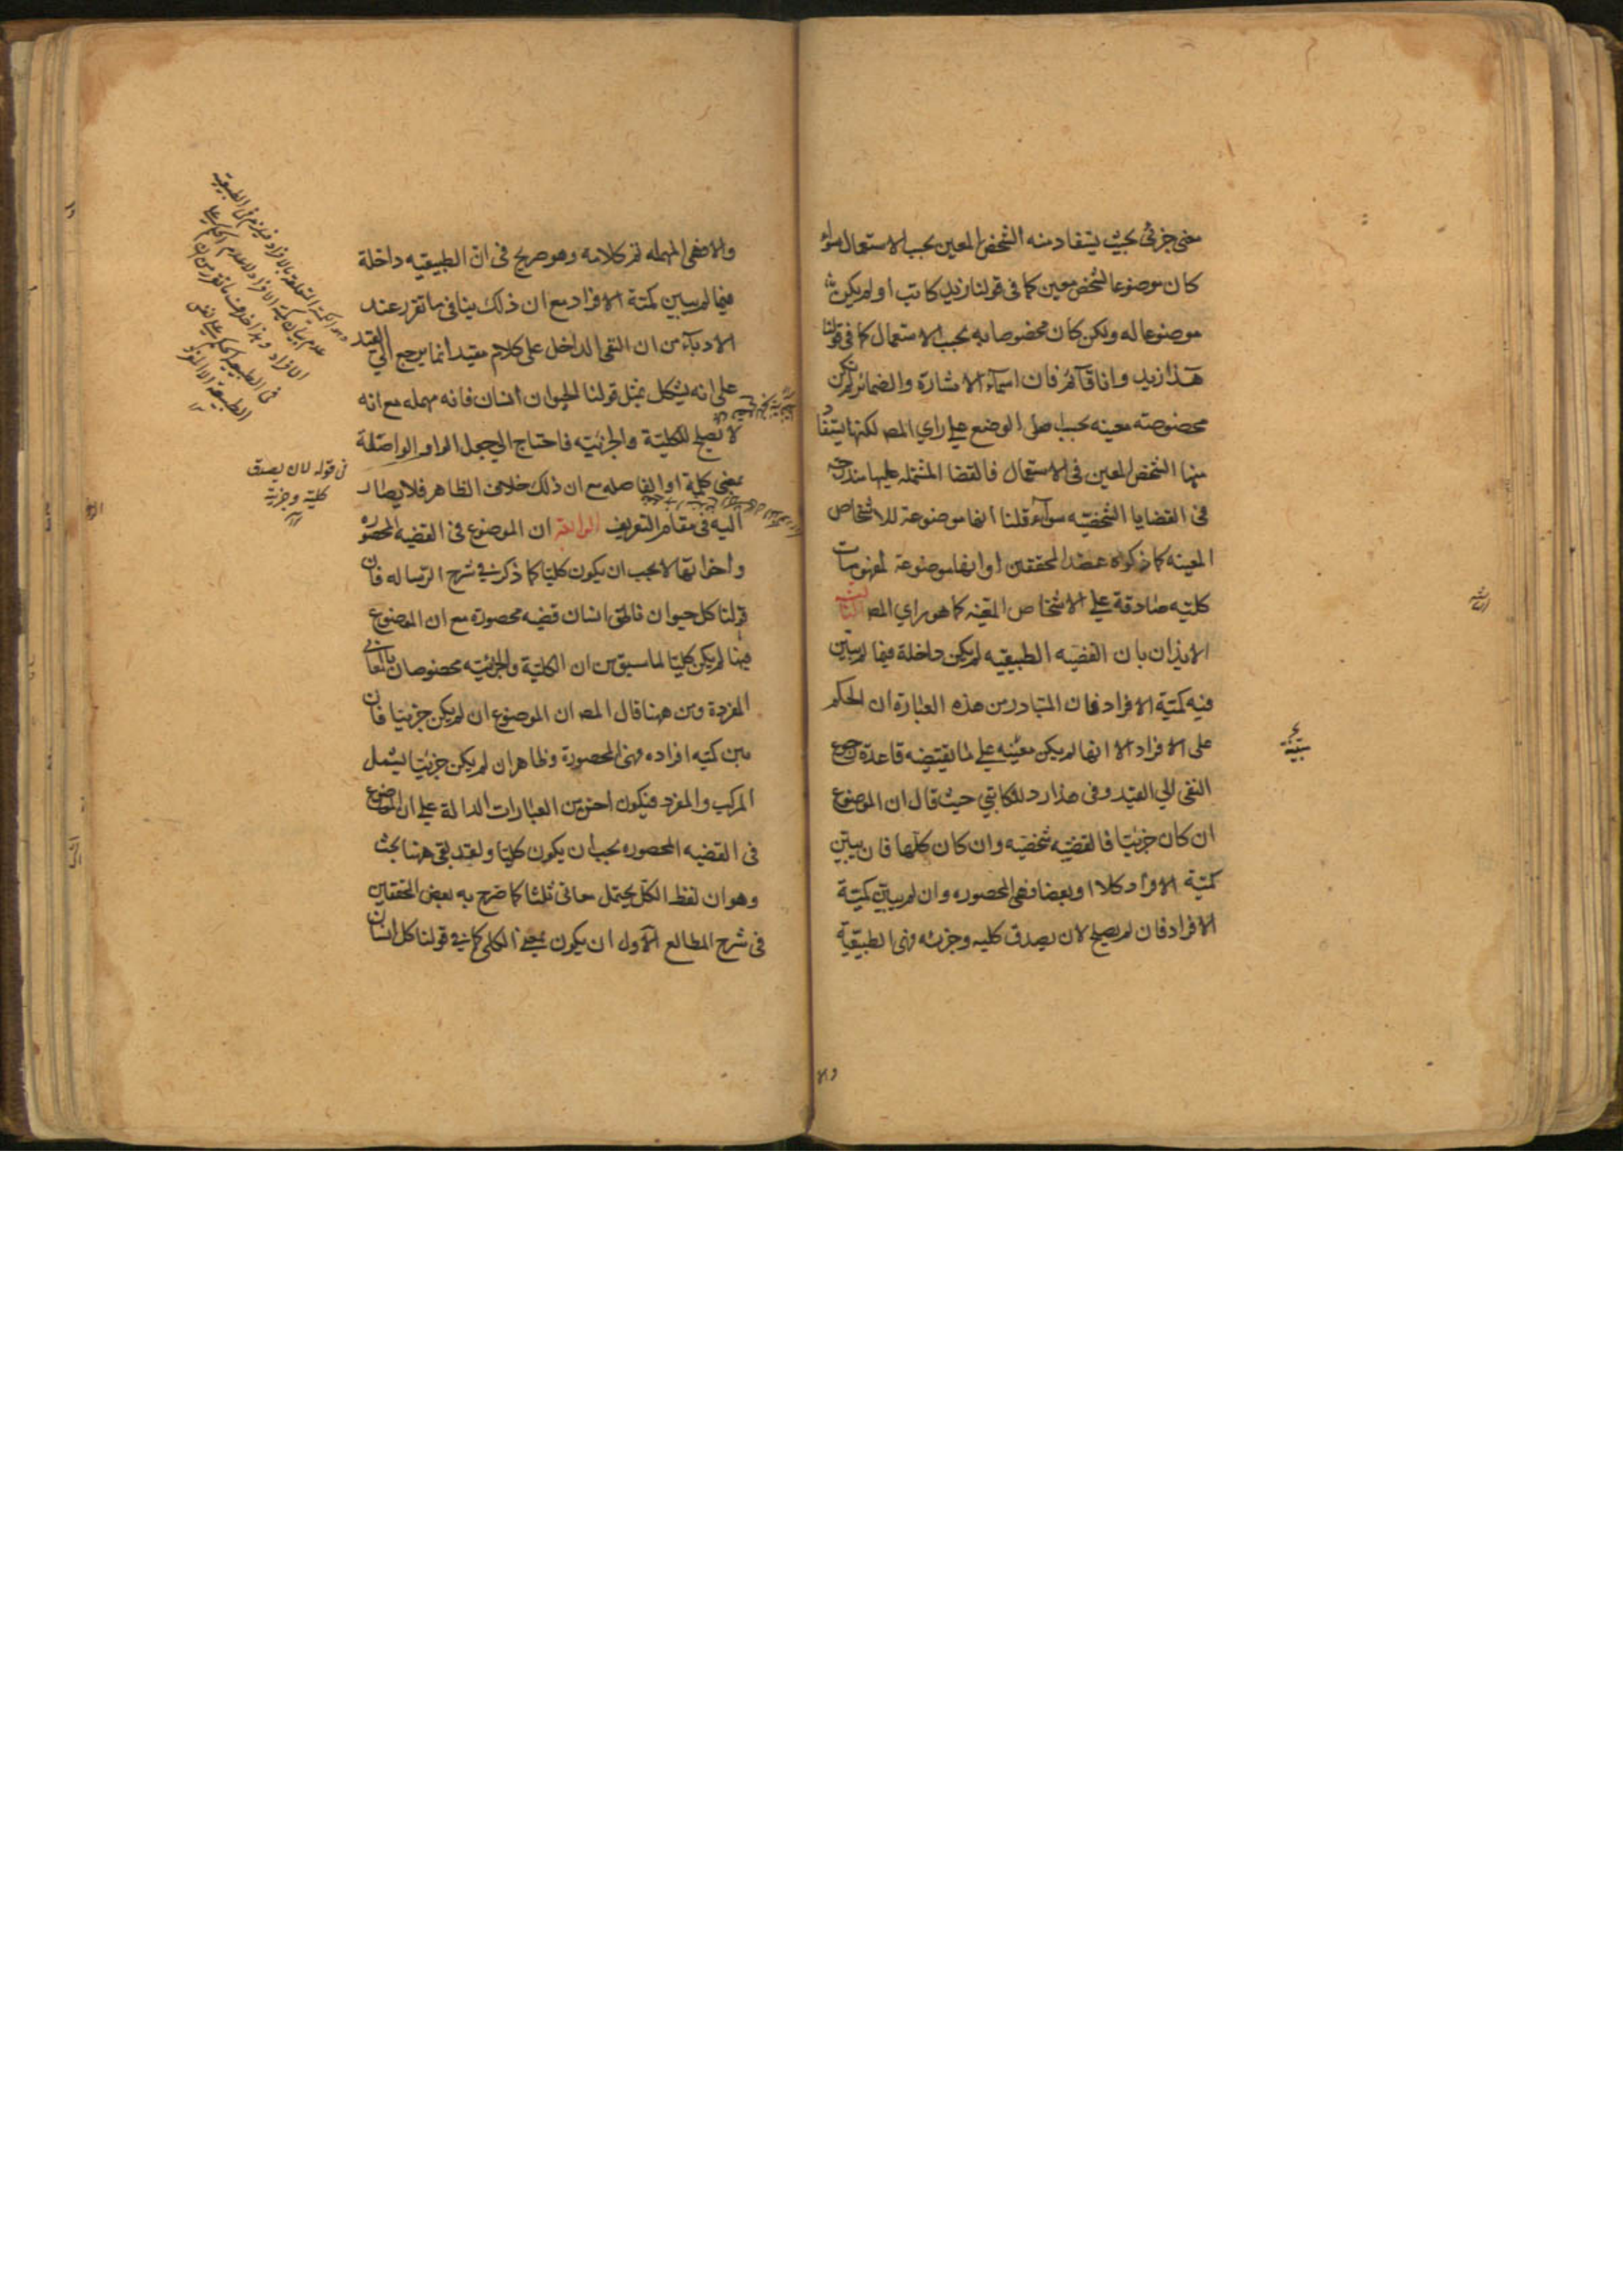 معنى جزئى بحيث يستفاد منه الشخص المعين بحسب الاستعمال سواء
كان موضوعا لشخص معين كما فى قولنا زيد كاتب او لم يكن
موضوعا له ولكن كان مخصوصا به بحسب الاستعمال كما فى قولنا
هذا زيد وانا قائم فان اسماء الاشارة والضمائر لم تكن
مخصوصته معينه بحسب اصل الوضع على راي المصـ لكنها يستفاد
منها الشخص المعين فى الاستعمال فالقضايا المشتمله عليها مندرجة
فى القضايا الشخصيه سواء قلنا انها موضوعة للاشخاص
المعينه كما ذكره عضد المحققين او انها موضوعة لمفهومات
كليه صادقة على الاشخاص المعينه كما هو راي المصـ الثالث
الايذان بان القضيه الطبيعيه لم يكن داخلة فيما لم يبين
فيه كمية الافراد فان المتبادر من هذه العبارة ان الحكم
على الافراد الا انها لم يكن معينه على ما يقتضيه قاعدة رجوع
النفى الي القيد وفى هذا رد للكاتبي حيث قال ان الموضوع
ان كان جزئيا فالقضيه شخصيه وان كان كليا فان يبين
كمية الافراد كلا او بعضا فهى المحصوره وان لم يبين كمية
الافراد فان لم يصلح لان يصدق كليه وجزئه فهى الطبيعية
والا
والا فهى المهمله تم كلامه وهو صريح فى ان الطبيعيه داخلة
فيما لم يبين كمية الافراد مع ان ذلك ينافى ما تقرر عند
الادباء من ان النفى الداخل على كلام مقيد انما يرجع الي القيد
على انه يشكل بمثل قولنا الحيوان انسان فانه مهمله مع انه
لا تصلح للكلية والجزئيه فاحتاج الي جعل الواو الواصلة
بمعنى كلمة او الفاصله مع ان ذلك خلاف الظاهر فلا يصار
اليه فى مقام التعريف الرابعة ان الموضوع فى القضيه المحصوره
واخواتها لا يجب ان يكون كليا كما ذكر فى شرح الرساله فان
قولنا كل حيوان ناطق انسان قضيه محصوره مع ان الموضوع
فيها لم يكن كليا لما سبق من ان الكلية والجزئيه مخصوصان بالمعانى
المفردة ومن ههنا قال المصـ ان الموضوع ان لم يكن جزئيا فان
بين كميه افراده فهى المحصورة وظاهر ان لم يكن جزئيا يشمل
المركب والمفرد فيكون احسن من العبارات الدالة على ان الموضوع
فى القضيه المحصوره يجب ان يكون كليا ولقد بقى ههنا بحث
وهو ان لفظ الكل يحتمل معانى ثلثا كما صرح به بعض المحققين
فى شرح المطالع الاول ان يكون بمعنى الكلى كما فى قولنا كل انسان
فى قوله لان يصدق
كلية وجزئية